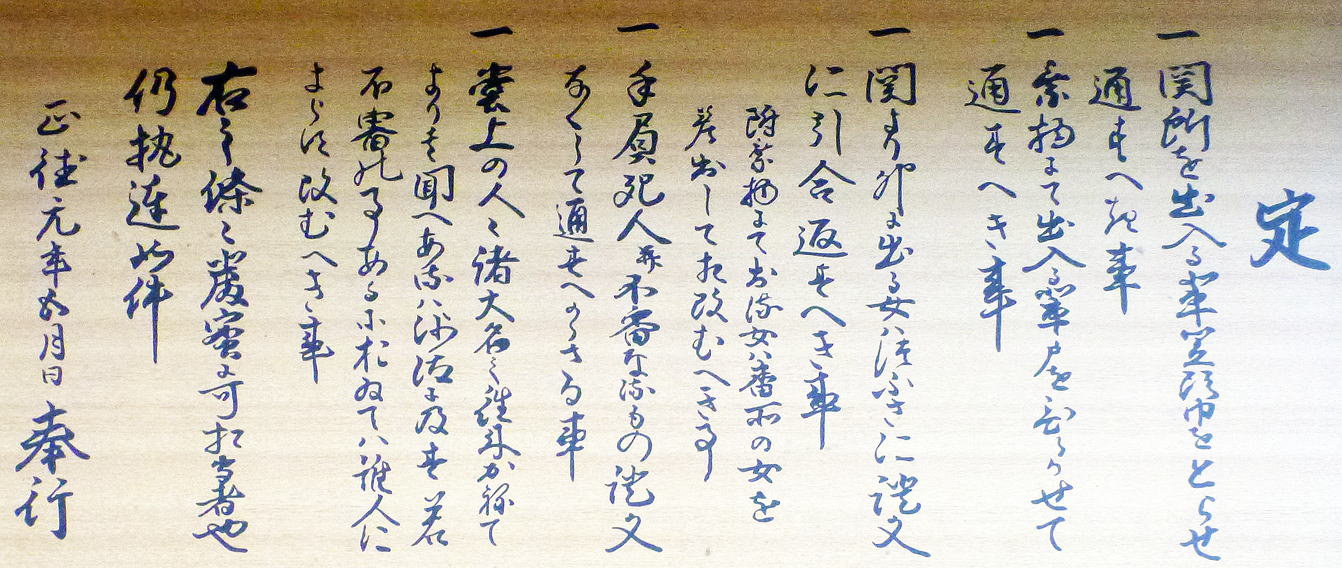 定
一 関所を出入る輩笠頭巾をとらせ
通すへき事
一 乗物にて出入る輩戸をひらかせて
通すへき事
一 関より外に出る女ハつふさに證文
に引合通すへき事
附乗物にて出る女ハ番所の女を
差出して相改むへき事
一 手負死人并不審なるもの證文
なくして通すへからさる事
一 堂上の人々諸大名之往来かねて
より其聞へあるハ沙汰に及す若
不審の事あるに於ゐてハ誰人に
よらす改むへき事
右之條々厳密に可相守者也
仍執達如件
正徳元年五月日 奉行